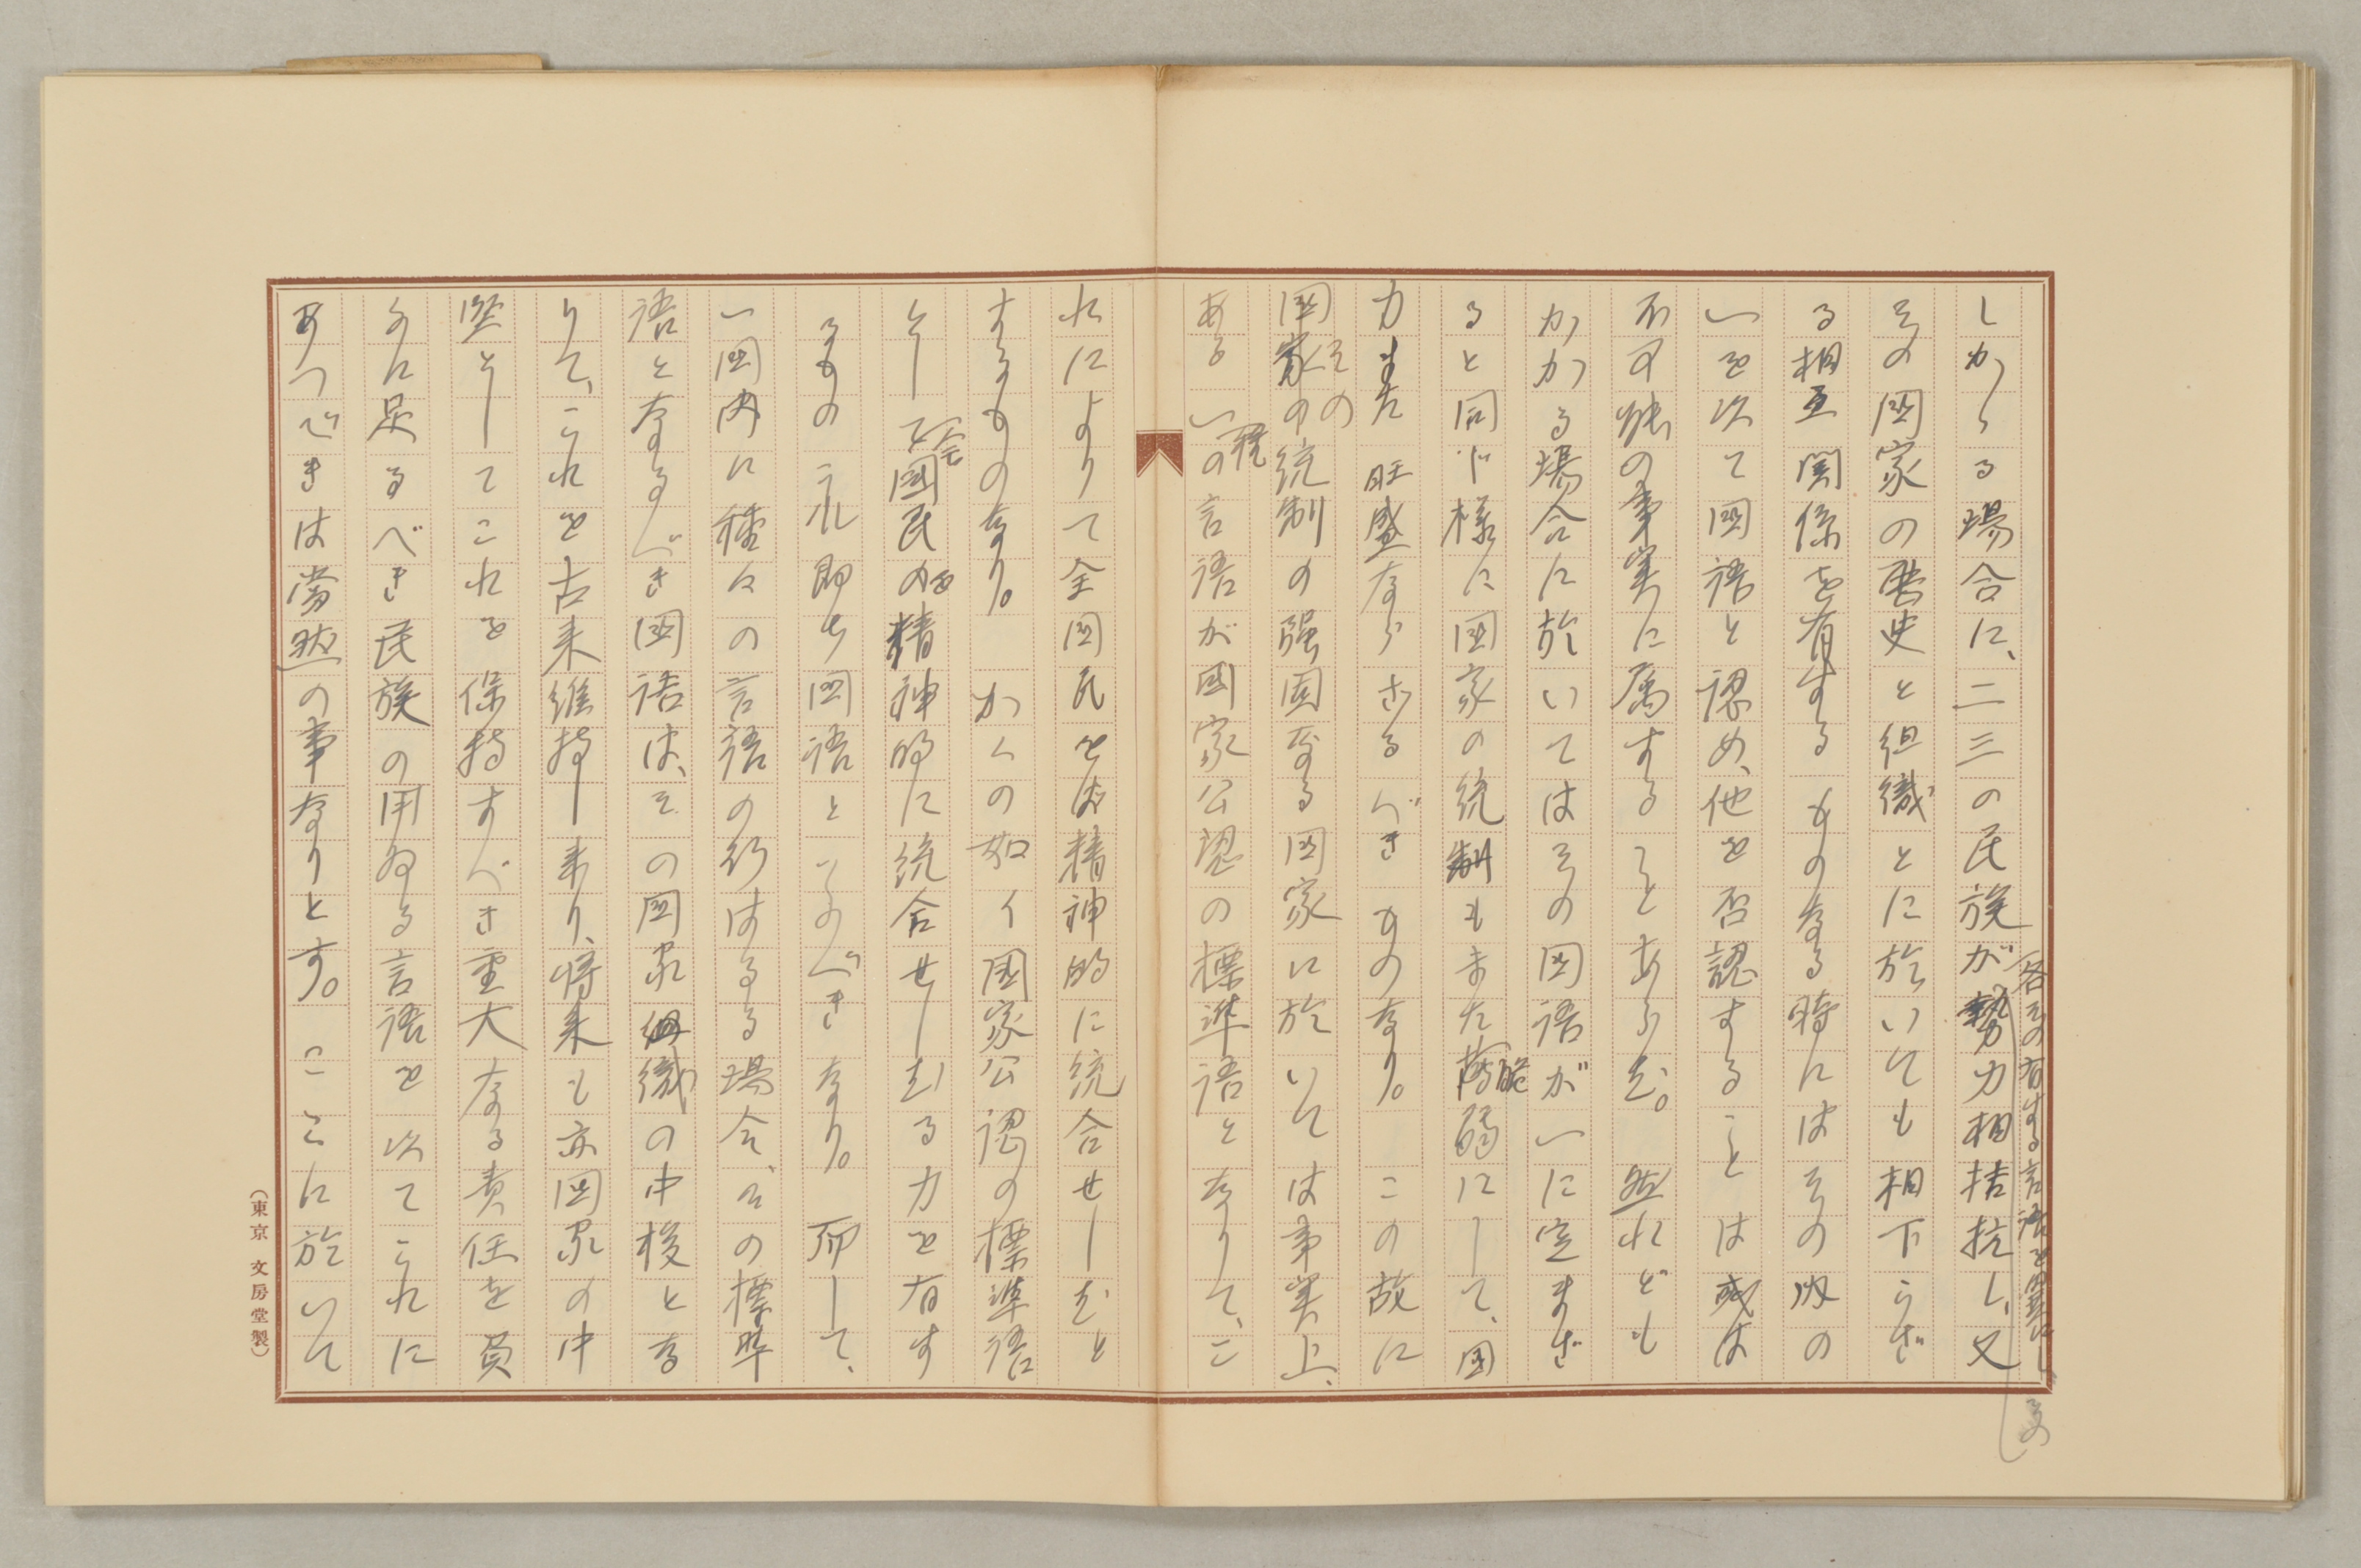 しかゝる場合に、二三の民族が勢力相拮抗し、又
各その有する言語を異にし、その
その国家の歴史と組織とに於いても相下らざ
る相互関係を有するものなる時にはその内の
一を以て国語と認め、他を否認することは或は
不可能の事実に属することあらむ。然れども
かかる場合に於いてはその国語が一に定まざ
ると同じ様に国家の統制もまた薄弱にして、国
脆
力また旺盛ならざるべきものなり。この故に
国家の統制の強固なる国家に於いては事実上、
その
ある一の言語が国家公認の標準語となりて、こ
種
れによりて全国民をば精神的に統合せしむと
するものなり。かくの如く国家公認の標準語
として國民の精神的に統合せしむる力を有す
全
を
るものこれ即ち国語といふべきなり。而して、
一国内に種々の言語の行はるる場合、その標準
語となるべき国語は、その国家組織の中核とな
りて、これを古来維持し来り、将来も亦国家の中
堅としてこれを保持すべき重大なる責任を負
ふに足るべき民族の用ゐる言語を以てこれに
あつべきは当然の事なりとす。ここに於いて
（東京 文房堂製）